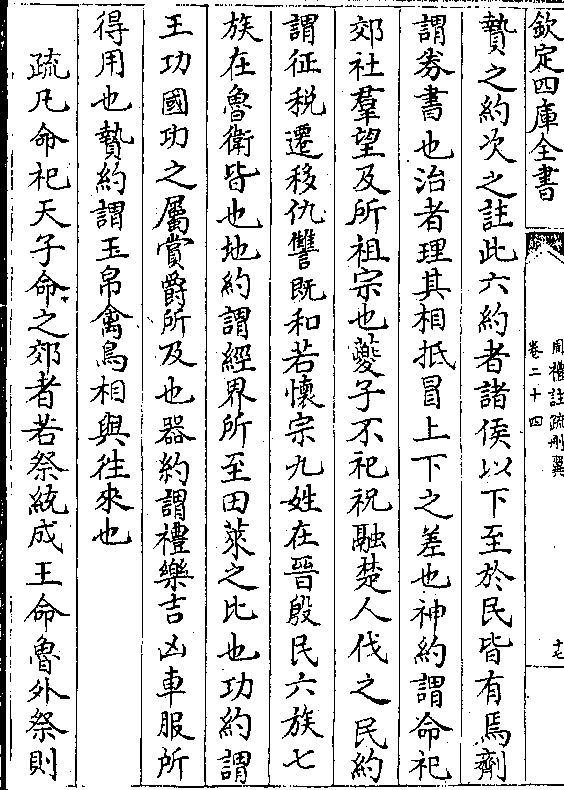 欽定四庫全書
周禮註疏刪翼
卷二十四
十七
贄之約次之註此六約者諸侯以下至於民皆有焉劑
謂券書也治者理其相抵冒上下之差也神約謂命祀
郊社羣望及所祖宗也夔子不祀祝融楚人伐之民約
謂征稅遷移仇讐既和若懷宗九姓在晉殷民六族七
族在魯衛皆也地約謂經界所至田萊之比也功約謂
王功國功之屬賞爵所及也器約謂禮樂吉凶車服所
得用也贄約謂玉帛禽鳥相與往來也
疏凡命祀天子命之郊者若祭統成王命魯外祭則